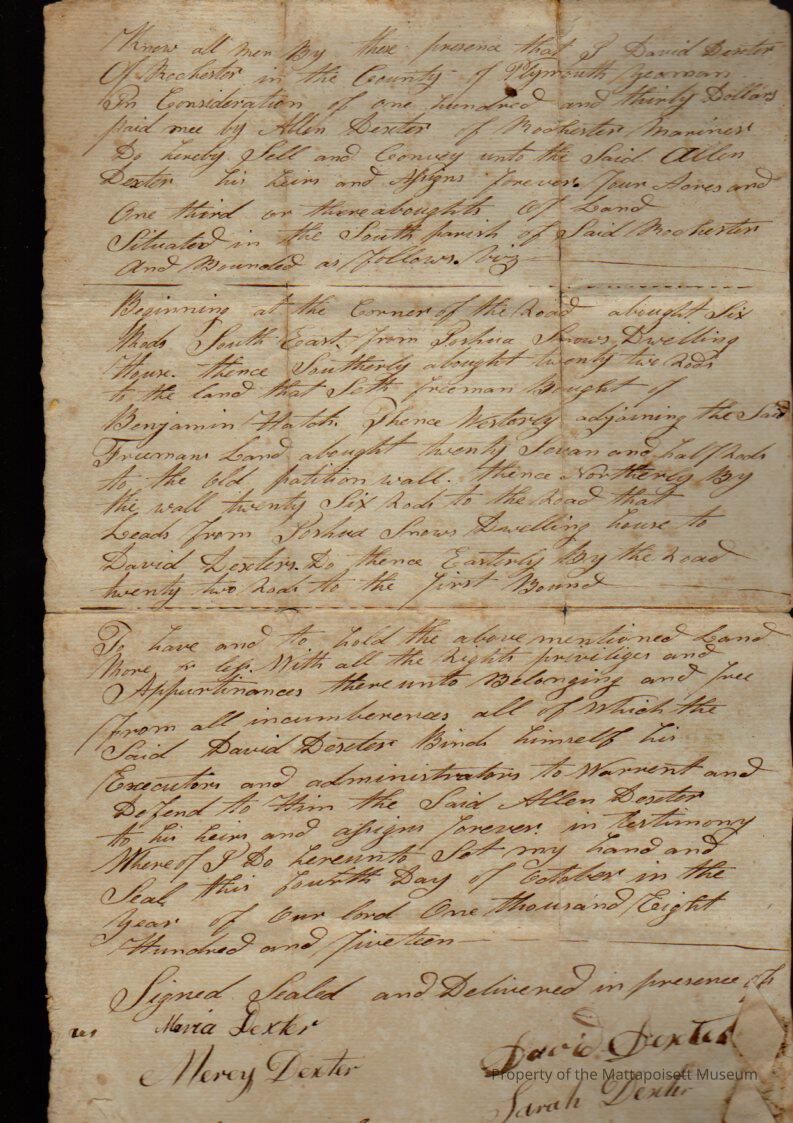 Know all men By these presence that I David Dexter
Of Rochester in the County of Plymouth yeoman
In Consideration of one hundred and thirty Dollars
paid mee by Allen Dexter of Rochester Mariner
Do hereby Sell and Convey unto the Said Allen
Dexter his heirs and Assigns forever. four Acres and
One third or thereaboughts Of Land
Situated in the South parish of Said Rochester
And Bounded as follows. viz
Beginning at the Corner of the Road abought Six
Rods South East from Joshua Snows Dwelling
House. thence Southerly abought twenty two Rods
to the land that Seth freeman Bought of
Benjamin Hatch. Thence Westerly adjoining the Said
Freemans Land abought twenty Sevan and half Rods
to the Old patition wall. thence Northerly By
the wall twenty Six Rods to the Road that
Leads from Joshua Snows Dwelling house to
David Dexters. Do thence Easterly By the Road
twenty two Rods to the first Bound
To have and to hold the above mentioned Land
More or less. With all the Rights priviliges and
Appurtinances thereunto Belonging and free
from all incumberences all of Which the
Said David Dexter Binds himself his
Executors and administrators to Warrent and
Defend to Him the Said Allen Dexter
to his heirs and assigns forever. in testimony
Whereof I Do hereunto Set my hand and
Seal this fourth Day of October in the
year of Our lord One thousand Eight
Hundred and fiveteen
Signed Sealed and Delivered in presence of
Maria Dexter
David Dexter
Mercy Dexter
Sarah Dexter
Property of the Mattapoisett Museum